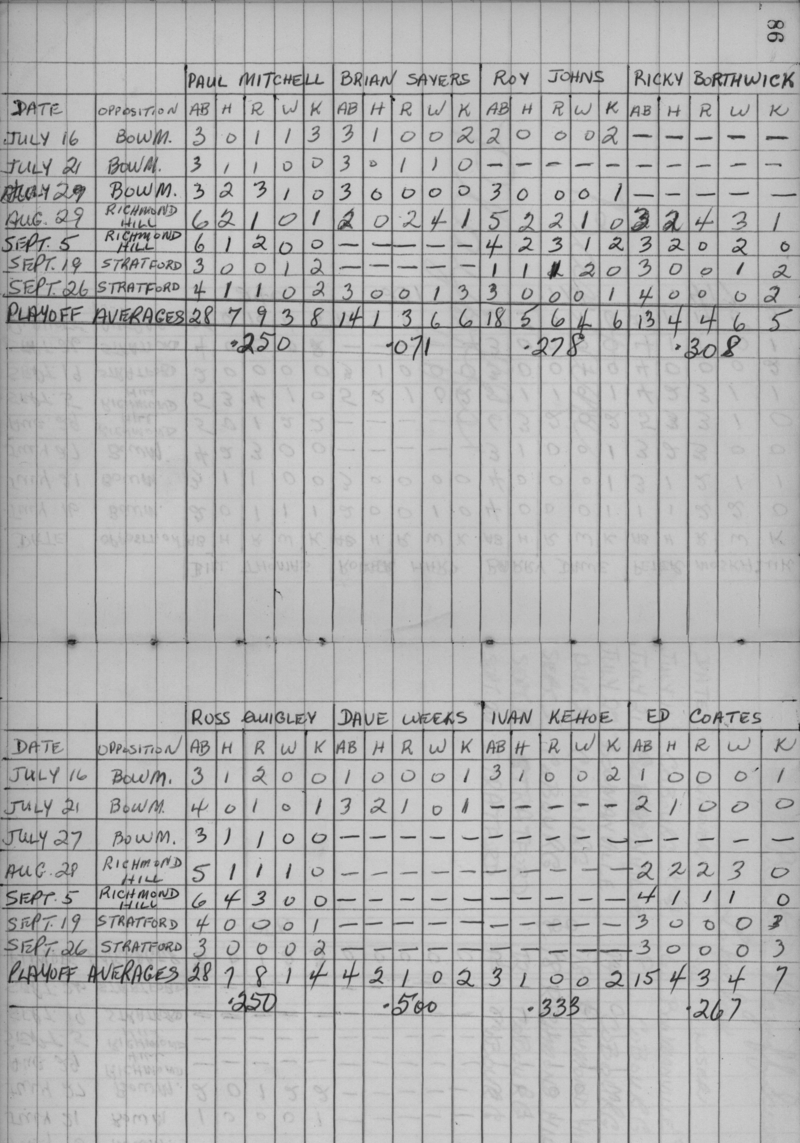 86
PAUL MITCHELL BRIAN SAYERS ROY JOHNS RICKY BORTHWICK
DATE OPPOSITION AB H R W K AB H R W K AB H R W K AB H R W K
JULY 16 BOWM. 3 0 1 1 3 3 1 0 0 2 2 0 0 0 2 — — — — —
JULY 21 BOWM. 3 1 1 0 0 3 0 1 1 0 — — — — — — — — — —
JULY 29 BOWM. 3 2 3 1 0 3 0 0 0 0 3 0 0 0 1 — — — — —
AUG. 29 RICHMOND HILL 6 2 1 0 1 2 0 2 4 1 5 2 2 1 0 3 2 4 3 1
SEPT. 5 RICHMOND HILL 6 1 2 0 0 — — — — — 4 2 3 1 2 3 2 0 2 0
SEPT. 19 STRATFORD 3 0 0 1 2 — — — — — 1 1 1 2 0 3 0 0 1 2
SEPT. 26 STRATFORD 4 1 1 0 2 3 0 0 1 3 3 0 0 0 1 4 0 0 0 2
PLAYOFF AVERAGES 28 7 9 3 8 14 1 3 6 6 18 5 6 4 6 13 4 4 6 5
.250 .071 .278 .308
ROSS QUIGLEY DAVE WEEKS IVAN KEHOE ED COATES
DATE OPPOSITION AB H R W K AB H R W K AB H R W K AB H R W K
JULY 16 BOWM. 3 1 2 0 0 1 0 0 0 1 3 1 0 0 2 1 0 0 0 1
JULY 21 BOWM. 4 0 1 0 1 3 2 1 0 1 — — — — — 2 1 0 0 0
JULY 27 BOWM. 3 1 1 0 0 — — — — — — — — — — — — — — —
AUG. 28 RICHMOND HILL 5 1 1 1 0 — — — — — — — — — — 2 2 2 3 0
SEPT. 5 RICHMOND HILL 6 4 3 0 0 — — — — — — — — — — 4 1 1 1 0
SEPT. 19 STRATFORD 4 0 0 0 1 — — — — — — — — — — 3 0 0 0 3
SEPT. 26 STRATFORD 3 0 0 0 2 — — — — — — — — — — 3 0 0 0 3
PLAYOFF AVERAGES 28 7 8 1 4 4 2 1 0 2 3 1 0 0 2 15 4 3 4 7
.250 .500 .333 .267